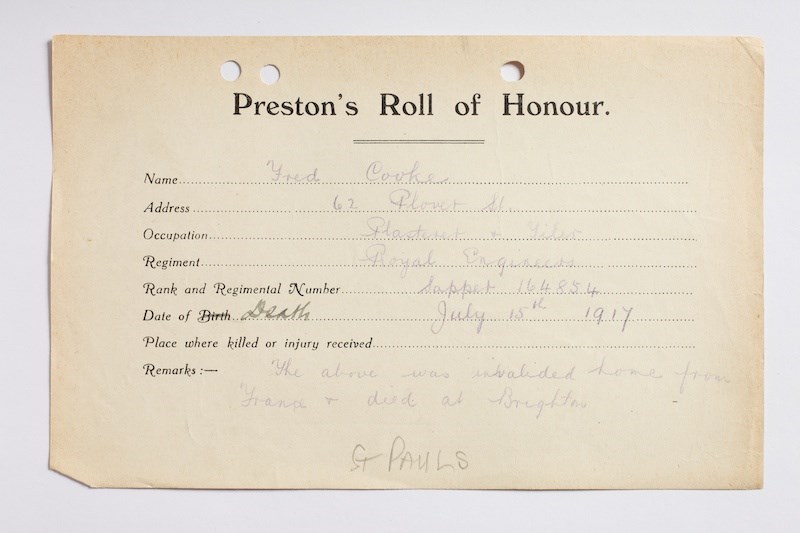 Preston's Roll of Honour.
Name Fred Cooke
Address 62 Plover St.
Occupation Plasterer & Tiler
Regiment Royal Engineers
Rank and Regimental Number Sapper 164854
Date of Birth Death July 15th 1917
Place where killed or injury received
Remarks:— The above was invalided home from
France & died at Brighton
St PAULS